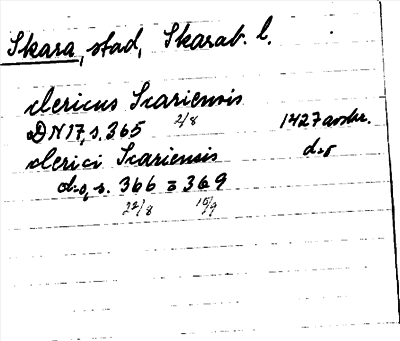 Skara, stad, Skarab. l.
clericus Scariensis
DN 17, s. 365 2/8 1427 avskr.
clerici Scariensis d:o
d:o, s. 366 369
22/8 10/9